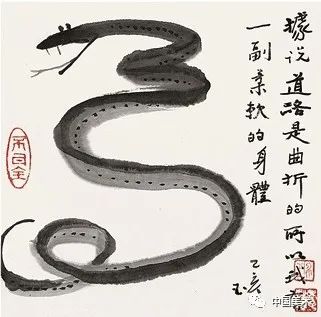 據说道路是曲折的所以我有
一副柔软的身體
玉
中国美术